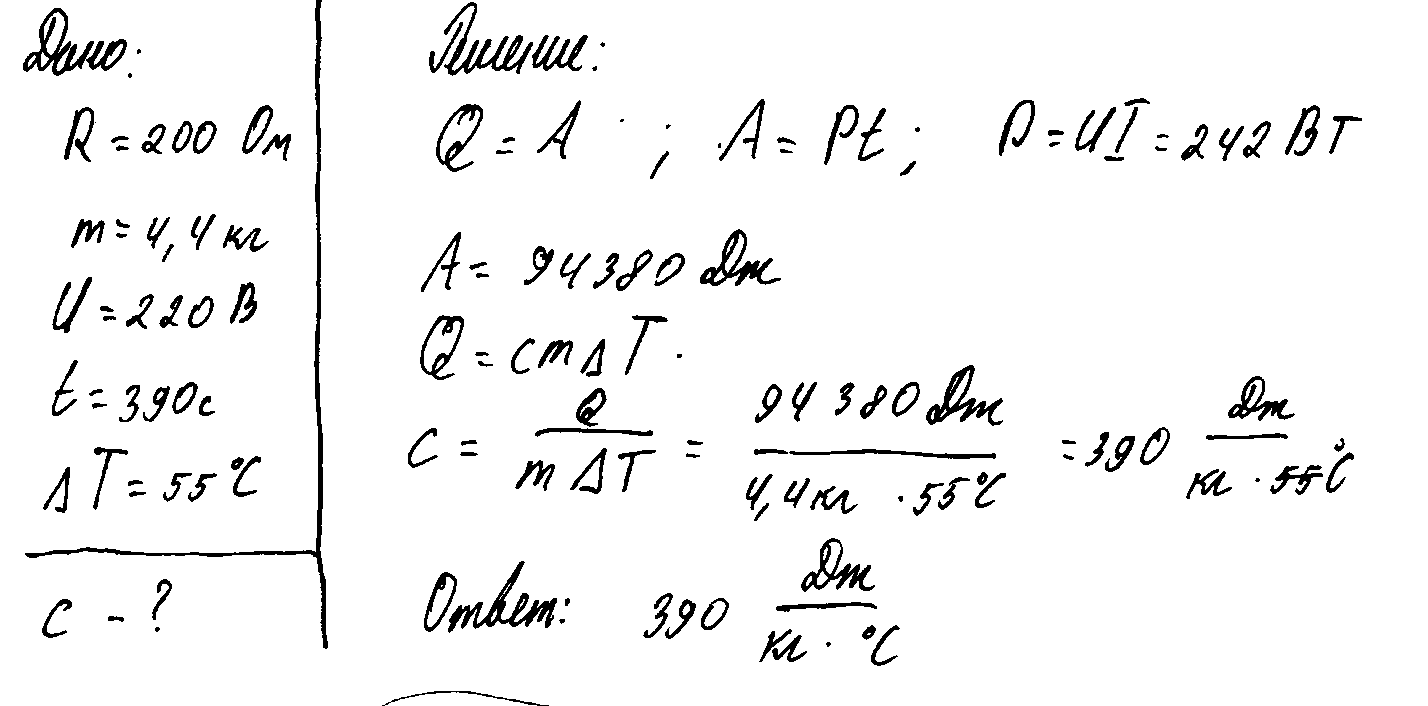 Дано:
R = 200 Ом
m = 4,4 кг
U = 220 В
t = 390 с
Δ T = 55 °C
c - ?
Решение:
Q = A ; A = Pt ; P = UI = 242 Вт
A = 94380 Дж
Q = cmΔT.
c = Q / mΔT = 94380 Дж / 4,4 кг · 55 °C = 390 Дж / кг · 55 °C
Ответ: 390 Дж / кг · °C